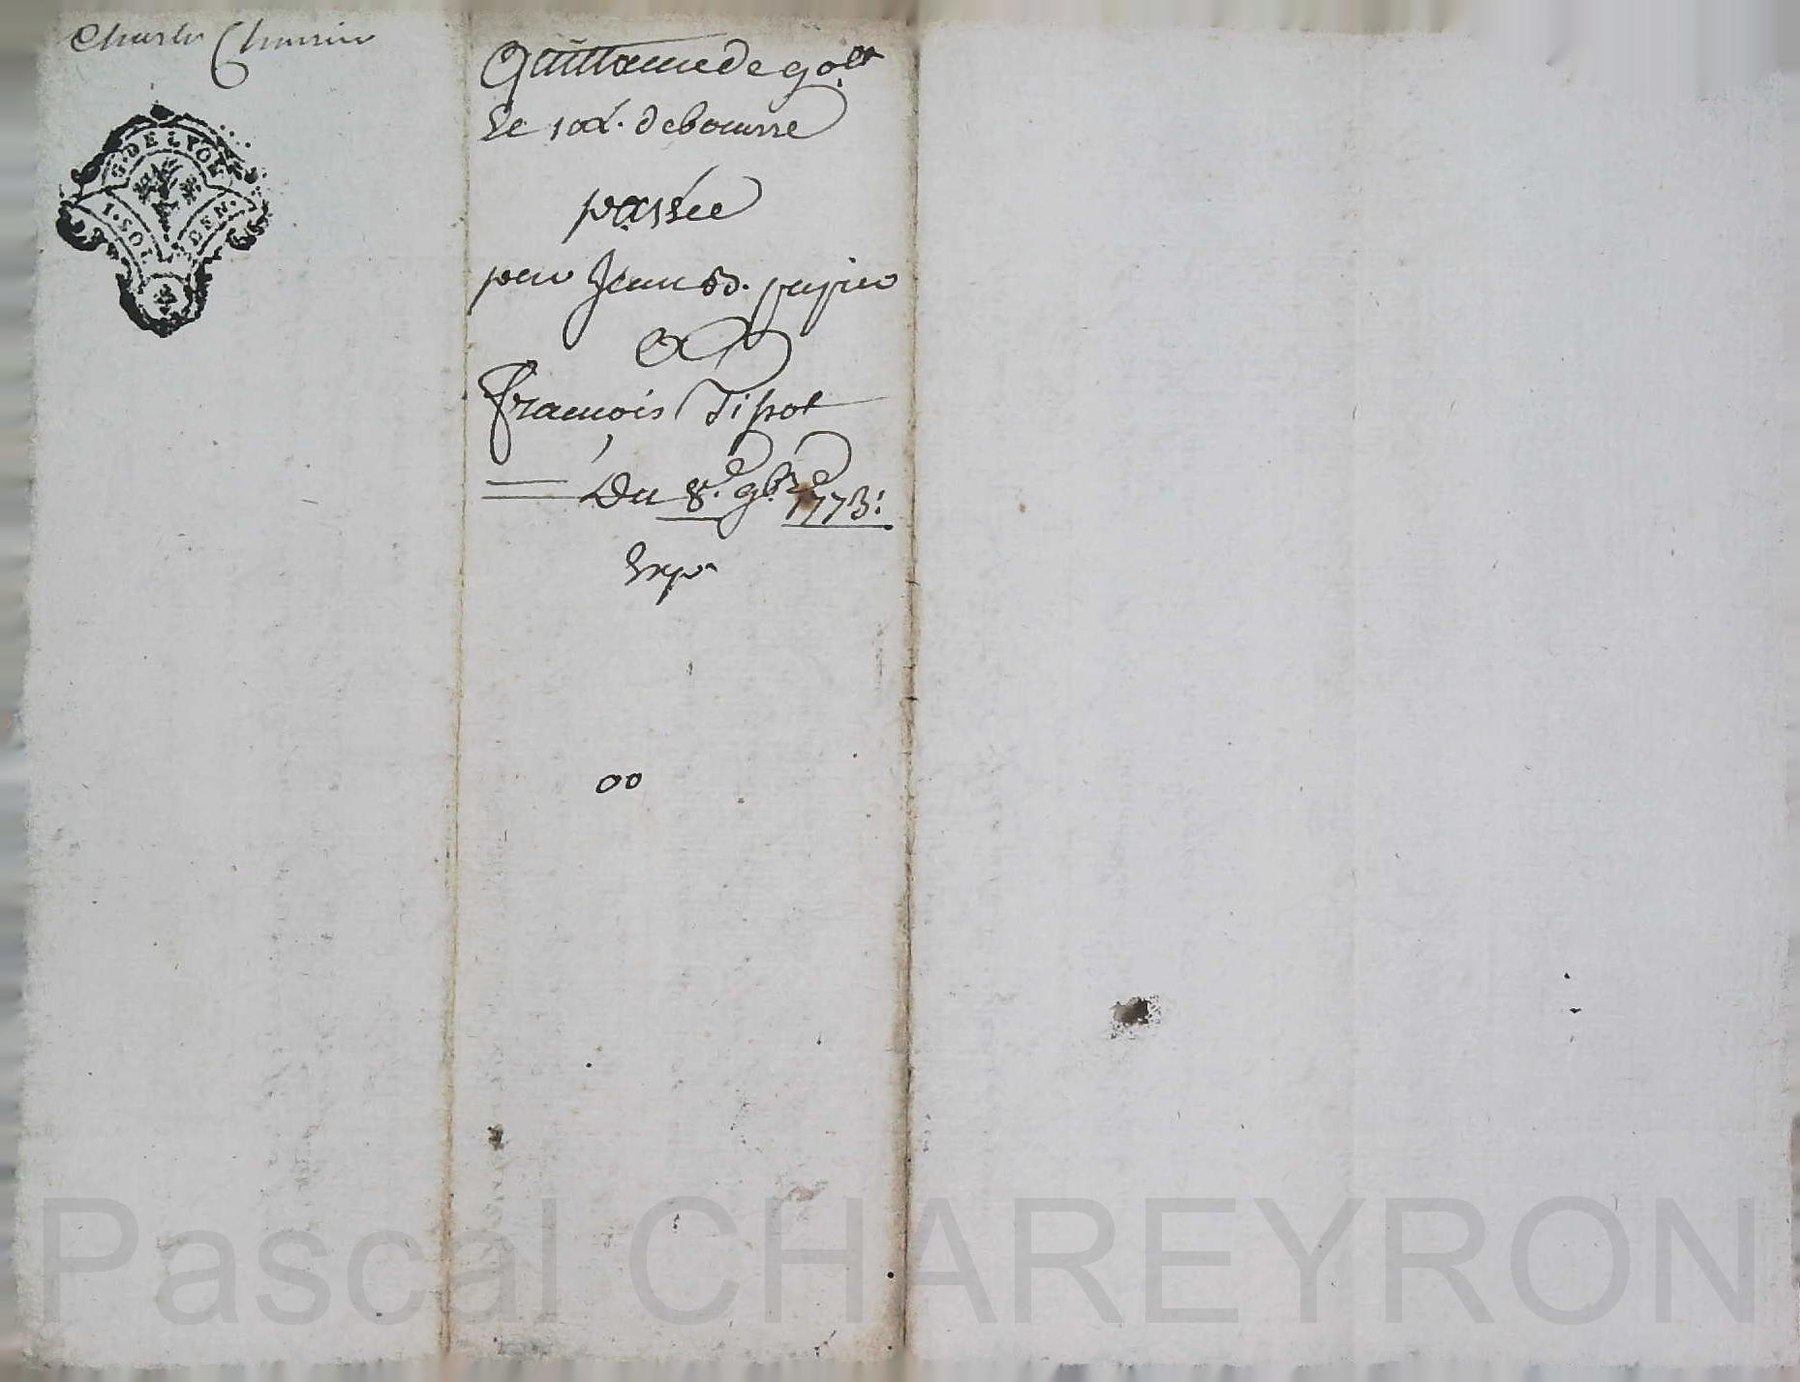 Charles
G. DE LYON
1. SOL DEN.
Quittance de 90tt
de bourse
passée
par Jean Bd.
&
François Tissot
Du 8e. 9bre 1773:
Exp
00
Pascal CHAREYRON